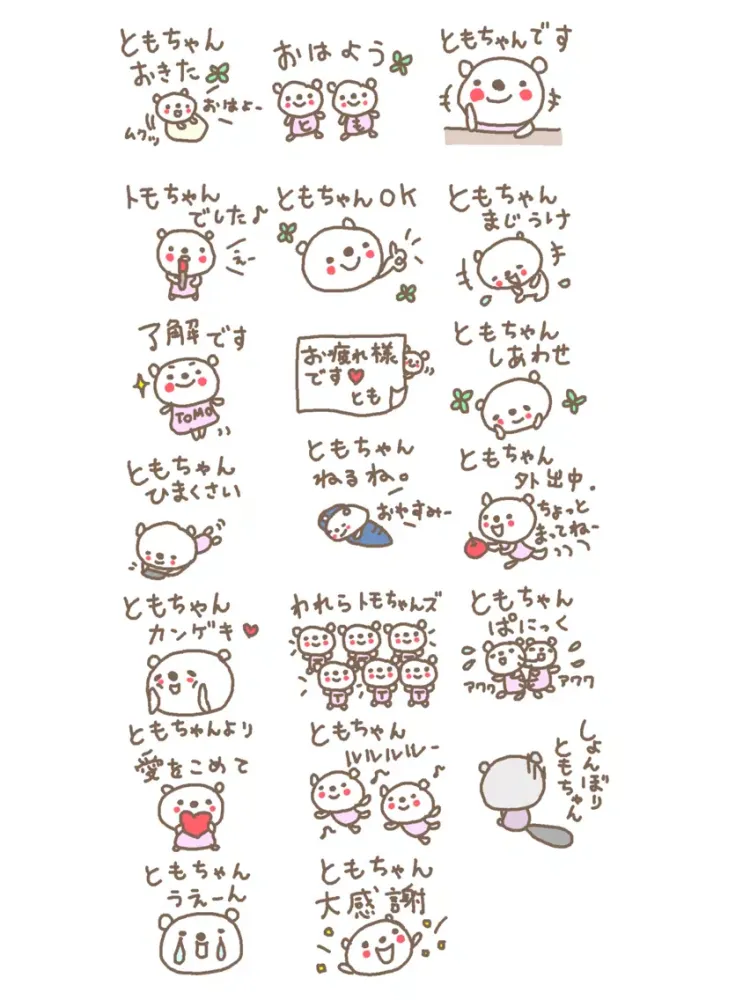 ともちゃん
おきた
おはよー
ムクッ
おはよう
と
も
ともちゃんです
トモちゃん
でした♪
えー
ともちゃんOK
ともちゃん
まじうけ
キ
了解です
TOMO
お疲れ様
です♥
とも
ともちゃん
しあわせ
ともちゃん
ひまくさい
ともちゃん
ねるね。
おやすみー
ともちゃん
外出中.
ちょっと
まってねー
ともちゃん
カンゲキ♥
われらトモちゃんズ
T
T
T
T
T
T
ともちゃん
ぱにっく
アワワ
アワワ
ともちゃんより
愛をこめて
ともちゃん
ルルルルルー
しょんぼり
ともちゃん
ともちゃん
うえーん
ともちゃん
大感謝